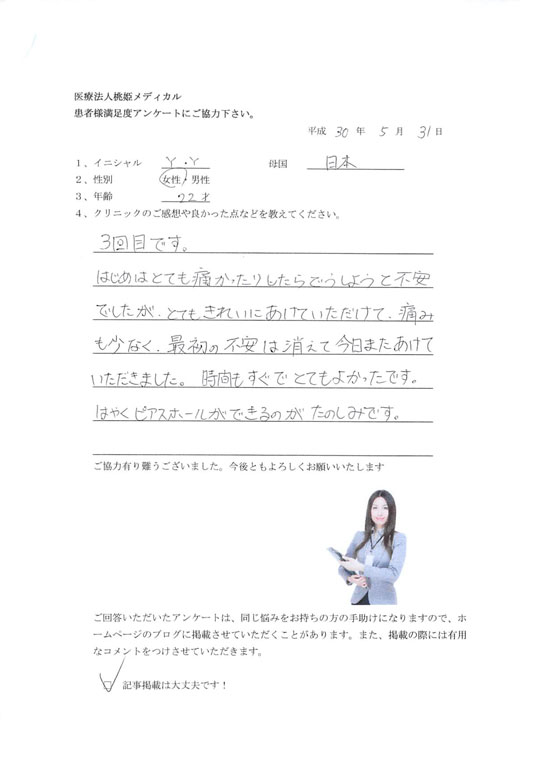 医療法人桃姫メディカル
患者様満足度アンケートにご協力下さい。
平成 30 年 5 月 31 日
1、イニシャル Y・Y 母国 日本
2、性別 女性・男性
3、年齢 22才
4、クリニックのご感想や良かった点などを教えてください。
3回目です。
はじめはとても痛かったりしたらどうしようと不安
でしたが、とてもきれいにあけていただけて、痛み
も少なく、最初の不安は消えて今日またあけて
いただきました。時間もすぐでとてもよかったです。
はやくピアスホールができるのがたのしみです。
ご協力有り難うございました。今後ともよろしくお願いいたします
ご回答いただいたアンケートは、同じ悩みをお持ちの方の手助けになりますので、ホ
ームページのブログに掲載させていただくことがあります。また、掲載の際には有用
なコメントをつけさせていただきます。
□ 記事掲載は大丈夫です！